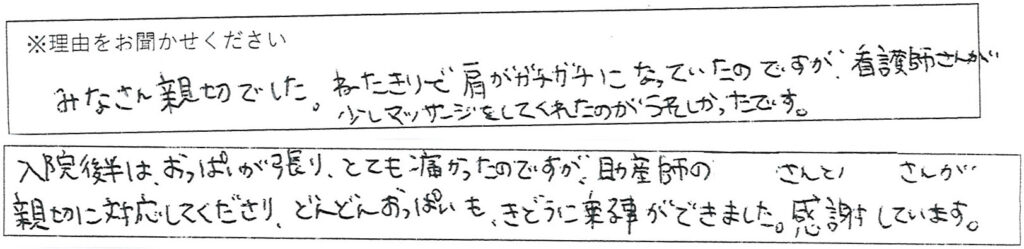 ※理由をお聞かせください
みなさん親切でした。ねたきりで肩がガチガチになっていたのですが、看護師さんが
少しマッサージをしてくれたのがうれしかったです。
入院後半は、おっぱいが張り、とても痛かったのですが、助産師の さんと さんが
親切に対応してくださり、どんどんおっぱいも、きどうに乗る事ができました。感謝しています。